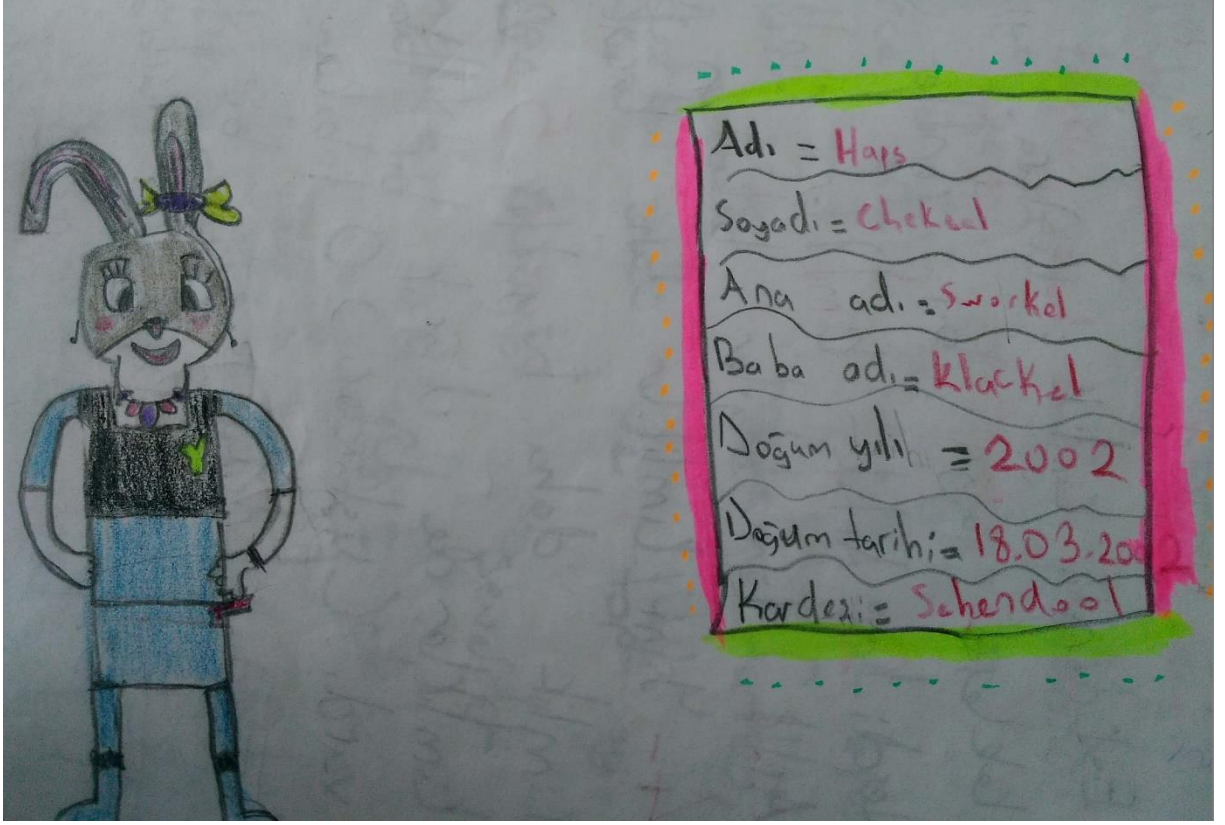 Adı = Haps
Soyadı = Cheksel
Ana adı = Sworkel
Baba adı = Klackel
Doğum yılı = 2002
Doğum tarihi = 18.03.2002
Kardeşi = Schendool
Y